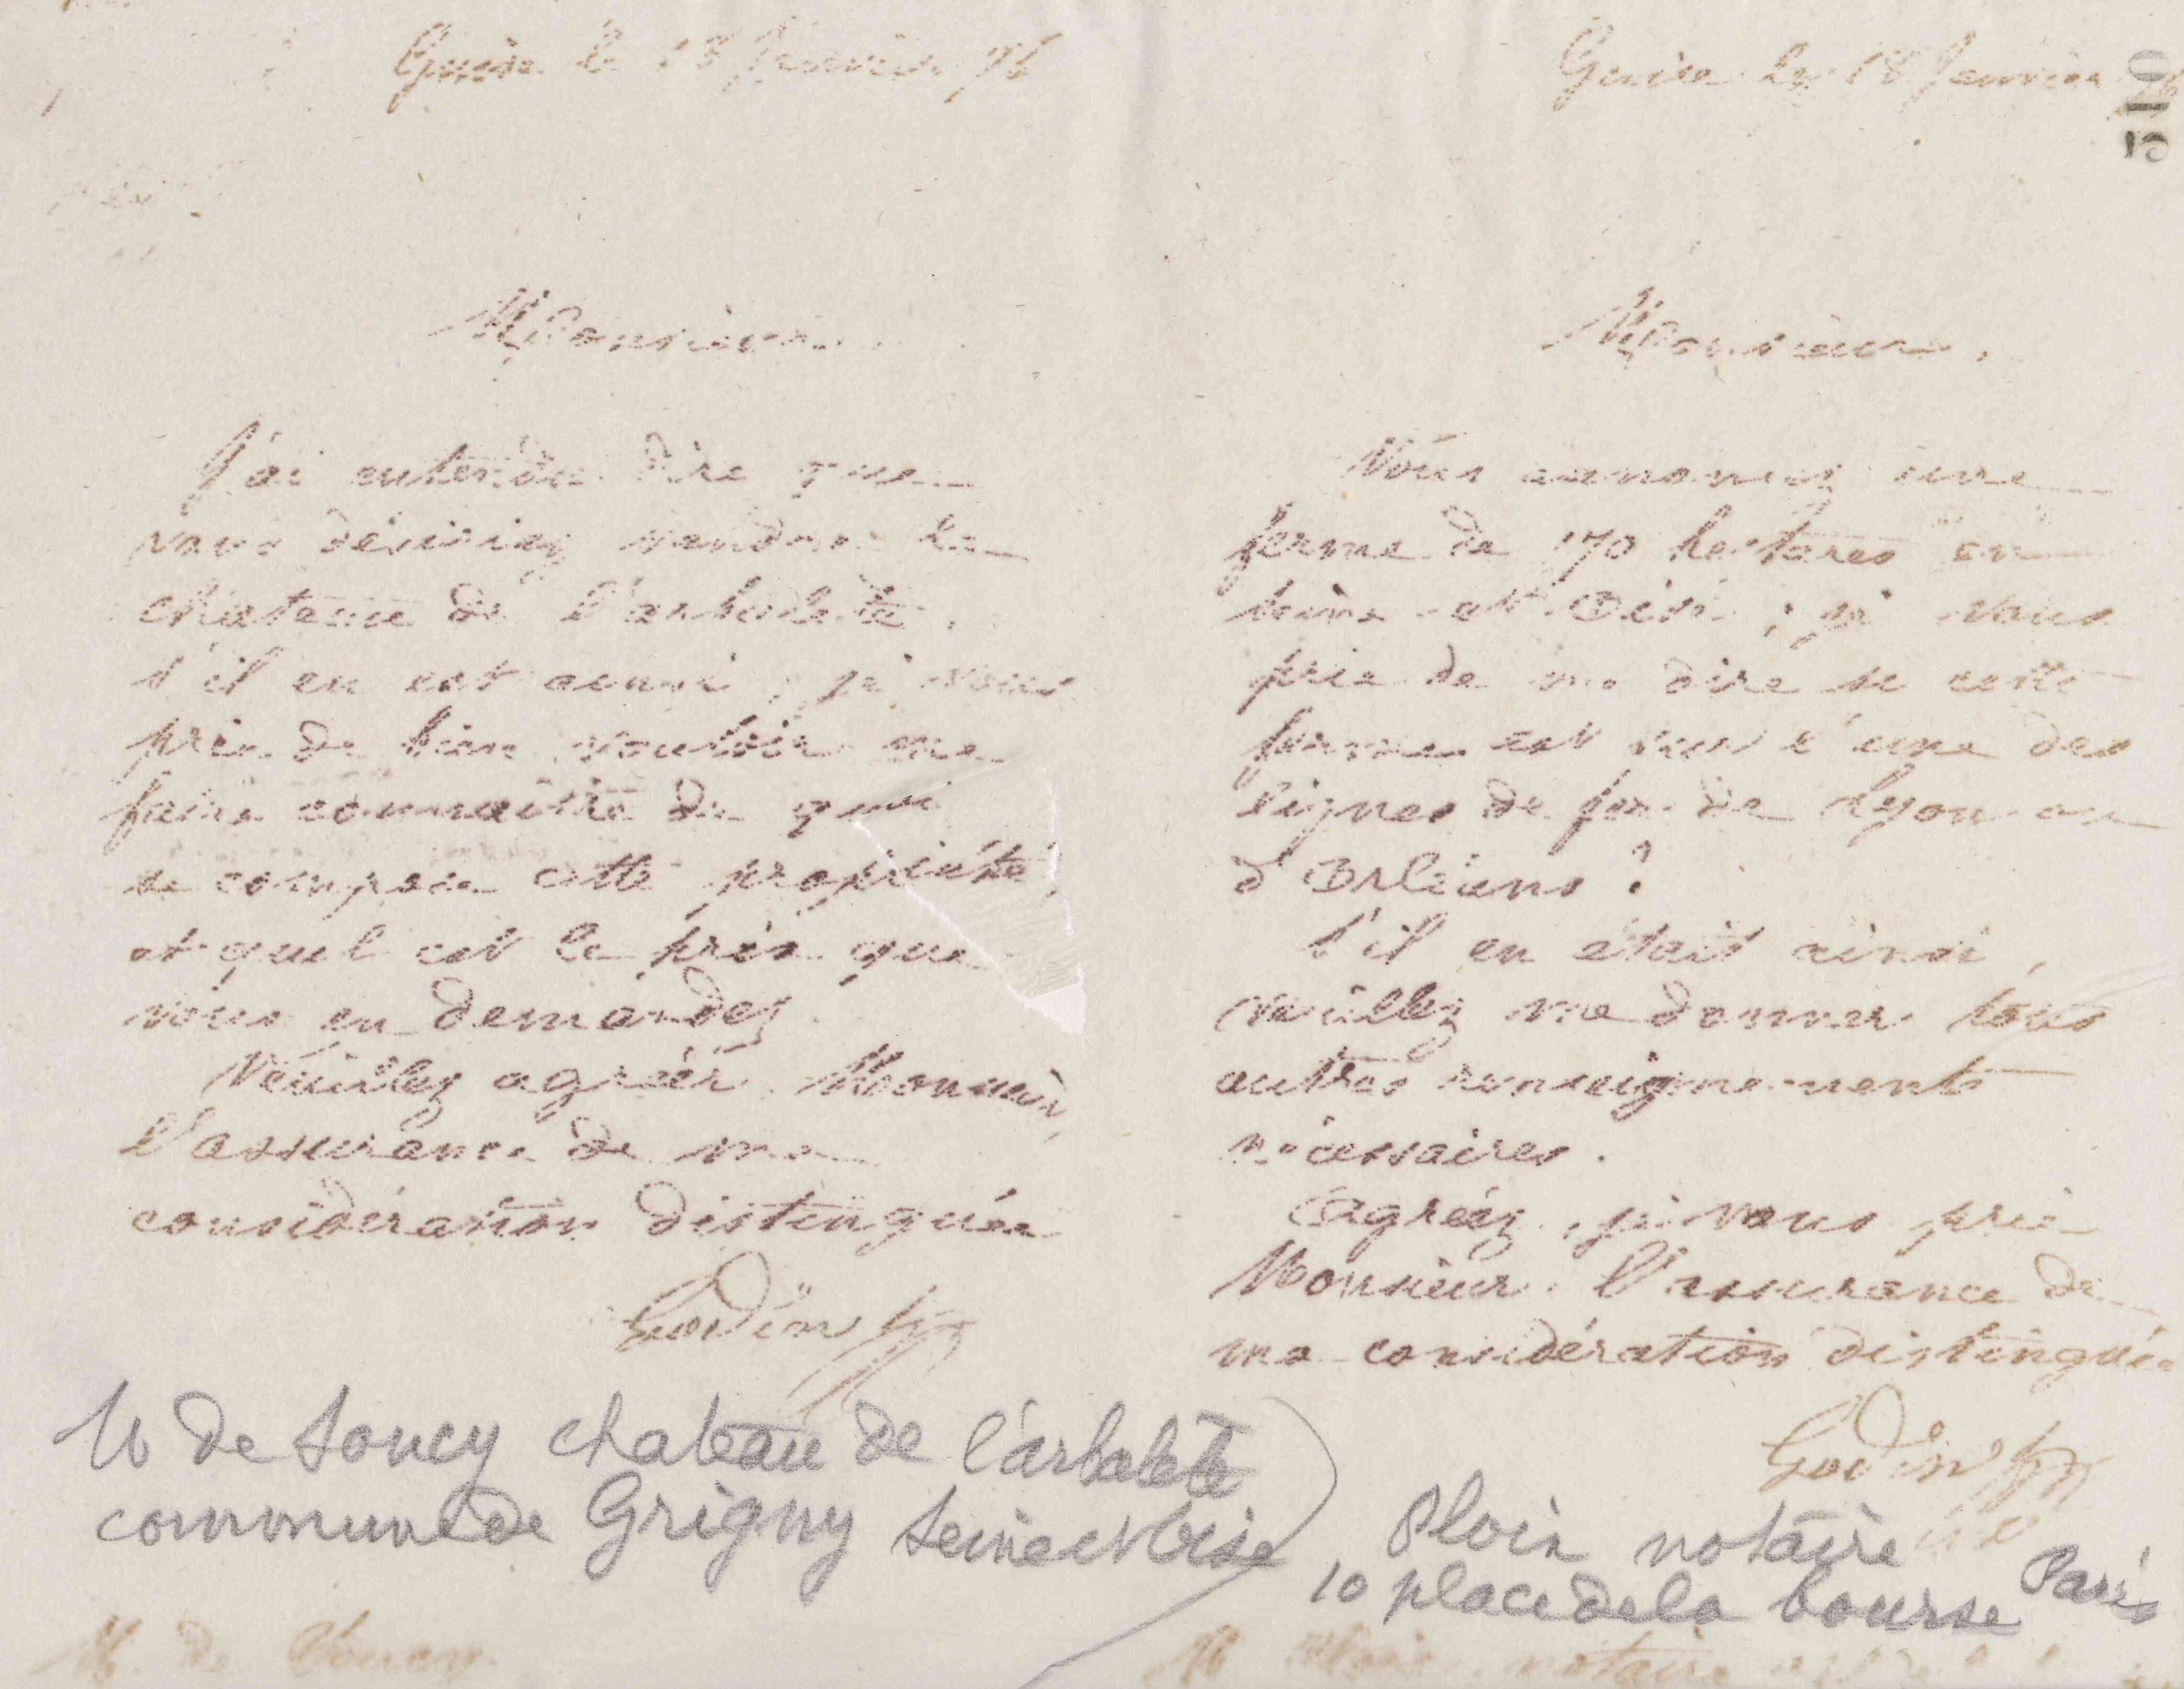 Guise le 18 Janvier 76
Monsieur.
J'ai entendu dire que
vous désiriez vendre le
chateau de l'arbalete.
s'il en est ainsi, je vous
prie de bien vouloir me
faire connaître de quoi
se compose cette propriété,
et quel est le prix que
vous en demandez.
Veuillez agréer, Monsieur,
l'assurance de ma
considération distinguée
Godin
M de Soucy chateau de l'arbalete
commune de Grigny Seine et Oise
M. de Soucy
Guise le 18 Janvier
Monsieur.
Vous annoncez une
ferme de 170 hectares en
Seine et Oise ; je vous
prie de me dire si cette
ferme est sur l'une des
lignes de fer de Lyon ou
d'Orléans ?
S'il en était ainsi,
veuillez me donner tous
autres renseignements
nécessaires.
Agréez, je vous prie
Monsieur, l'assurance de
ma considération distinguée
Godin
Ploix notaire
10 place de la bourse Paris
M Ploix notaire